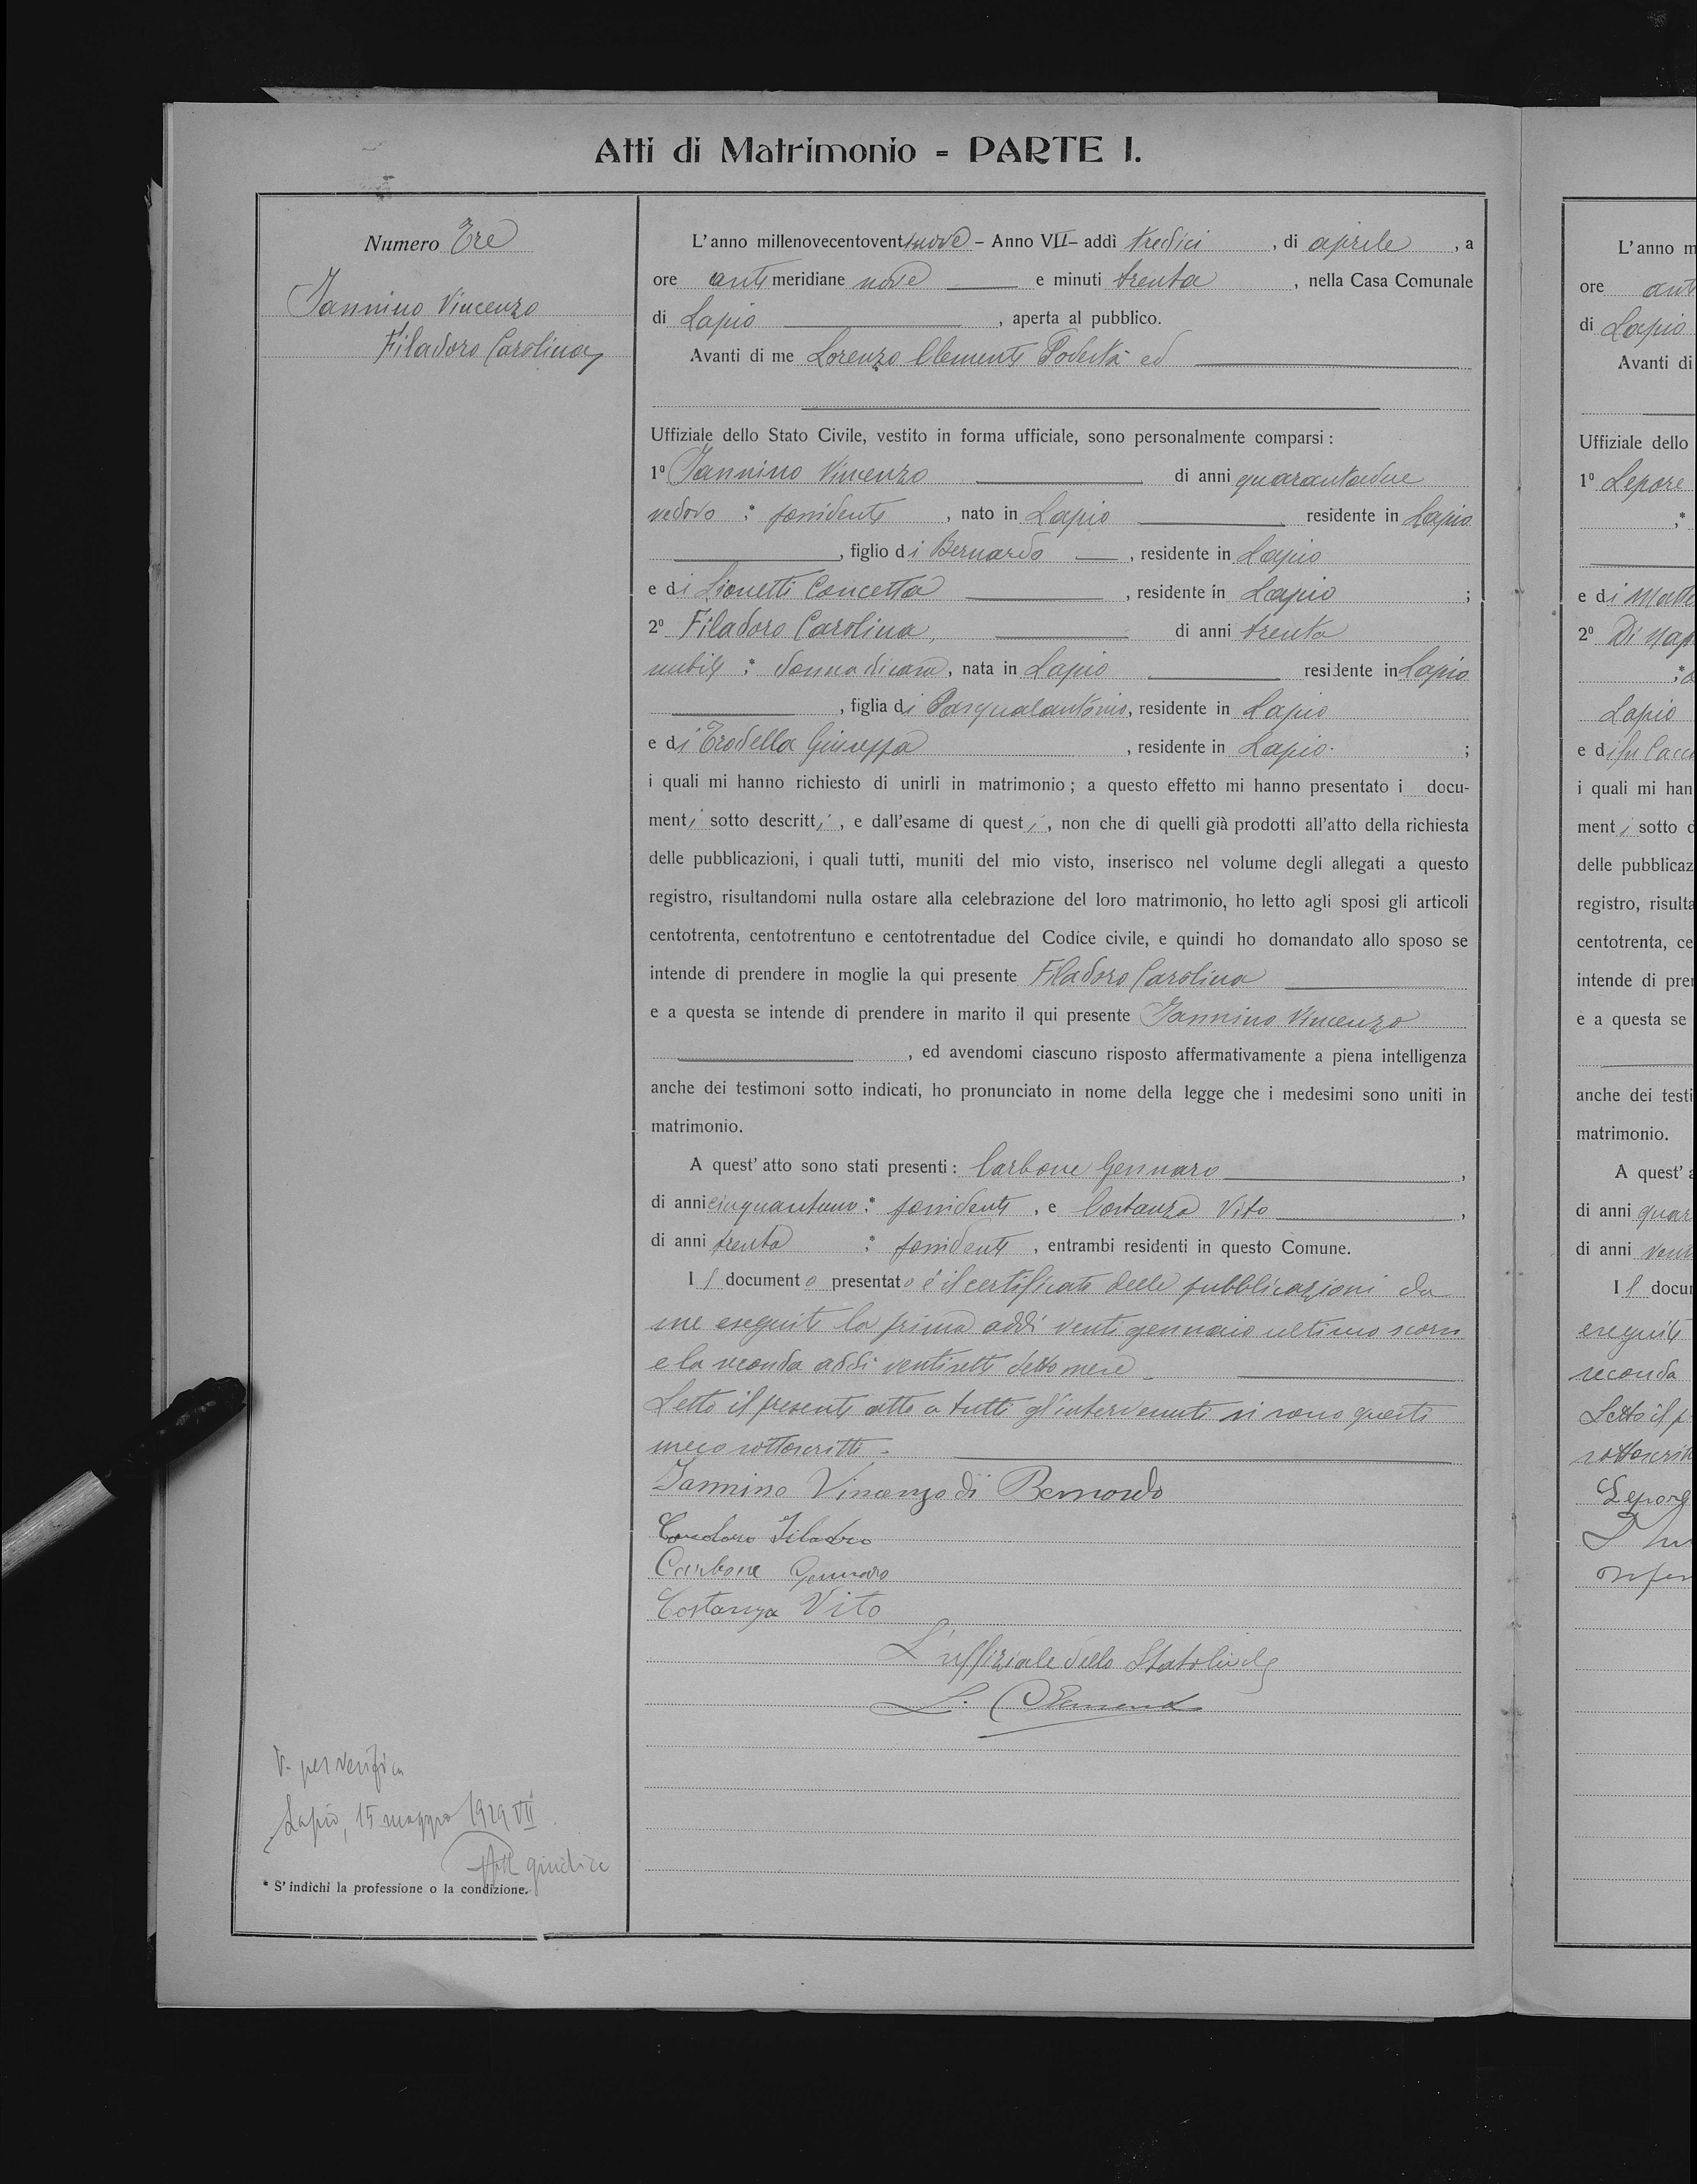 Atti di Matrimonio - PARTE I.
Numero Tre
Iannino Vincenzo
Filadoro Carolina
L'anno millenovecentoventinove - Anno VII - addì tredici, di aprile, a
ore antimeridiane nove e minuti trenta, nella Casa Comunale
di Lapio, aperta al pubblico.
Avanti di me Lorenzo Clemente Podestà ed
Uffiziale dello Stato Civile, vestito in forma ufficiale, sono personalmente comparsi:
1º Iannino Vincenzo di anni quarantadue
vedovo * possidente, nato in Lapio residente in Lapio
, figlio di Bernardo, residente in Lapio
e di Lionetti Concetta, residente in Lapio;
2º Filadoro Carolina, di anni trenta
nubile * donna di casa, nata in Lapio residente in Lapio
, figlia di Pasqualantonio, residente in Lapio
e di Trodella Giuseppa, residente in Lapio;
i quali mi hanno richiesto di unirli in matrimonio; a questo effetto mi hanno presentato i docu-
menti sotto descritti, e dall'esame di questi, non che di quelli già prodotti all'atto della richiesta
delle pubblicazioni, i quali tutti, muniti del mio visto, inserisco nel volume degli allegati a questo
registro, risultandomi nulla ostare alla celebrazione del loro matrimonio, ho letto agli sposi gli articoli
centotrenta, centotrentuno e centotrentadue del Codice civile, e quindi ho domandato allo sposo se
intende di prendere in moglie la qui presente Filadoro Carolina
e a questa se intende di prendere in marito il qui presente Iannino Vincenzo
, ed avendomi ciascuno risposto affermativamente a piena intelligenza
anche dei testimoni sotto indicati, ho pronunciato in nome della legge che i medesimi sono uniti in
matrimonio.
A quest'atto sono stati presenti: Carbone Gennaro,
di anni cinquantuno * possidente, e Costanza Vito,
di anni trenta * possidente, entrambi residenti in questo Comune.
Il documento presentato è il certificato delle pubblicazioni da
me eseguite la prima addì venti gennaio ultimo scorso
e la seconda addì ventisette detto mese
Letto il presente atto a tutti gl'intervenuti si sono questi
meco sottoscritti.
Iannino Vincenzo di Bernardo
Filadoro
Carbone Gennaro
Costanza Vito
L'uffiziale dello Stato Civile
L. Clemente
V. per verifica
Lapio, 15 maggio 1929 VII
giudice
* S'indichi la professione o la condizione.
L'anno m
ore ant
di Lapio
Avanti di
Uffiziale dello
1º Lepore
*
e di
2º Di Nap
*
Lapio
e di fu
i quali mi han
menti sotto d
delle pubblicaz
registro, risulta
centotrenta, ce
intende di prer
e a questa se
anche dei testi
matrimonio.
A quest' a
di anni quar
di anni vent
Il docum
eseguite
seconda
Letto il p
sottoscrit
Lepore